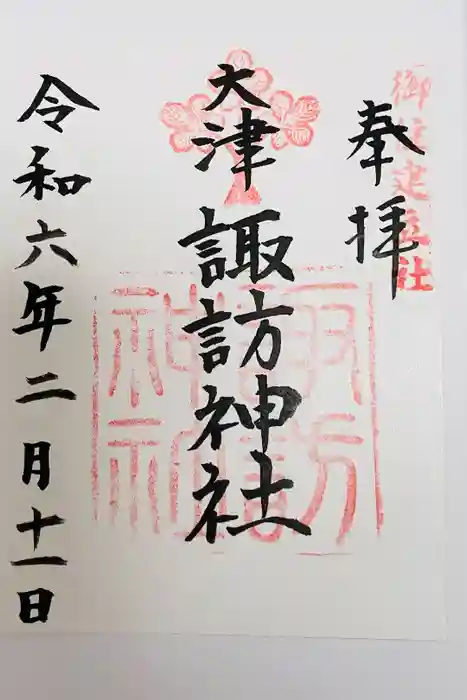 奉拝
御柱建立社
大津
諏訪神社
諏訪
神社
令和六年二月十一日